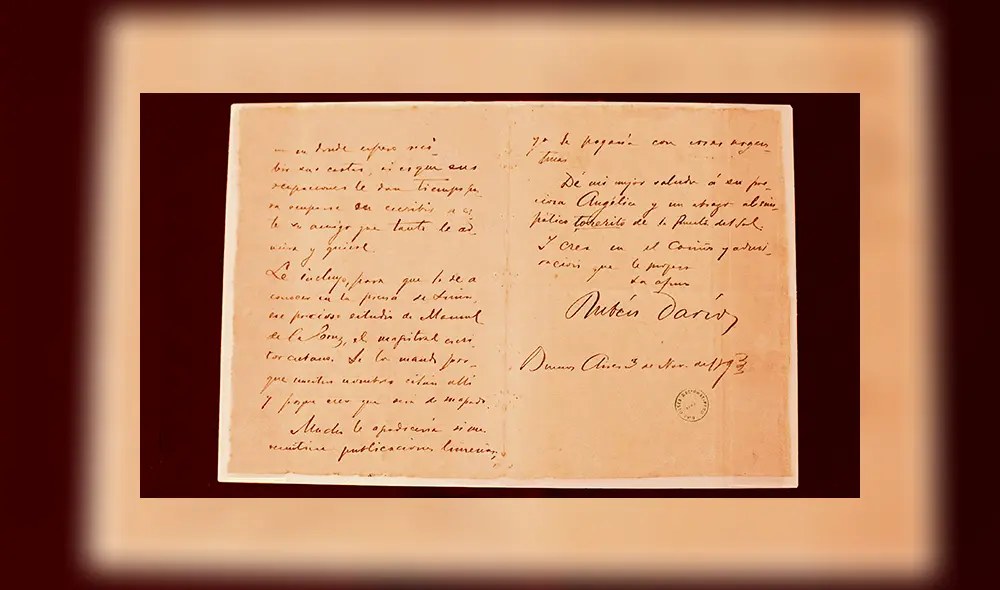 — en donde espero reci-
bir sus cartas, si es que sus
ocupaciones le dan tiempo pa-
ra ocuparse en escribir a es-
te su amigo que tanto le ad-
mira y quiere.
Le incluyo, para que lo dé a
conocer en la prensa de Lima,
ese precioso estudio de Manuel
de la Cruz, el magistral escri-
tor cubano. Se lo mando por-
que nuestros nombres están allí
y porque creo que será de su agrado.
Mucho le agradecería si me
remitiera publicaciones limeñas;
yo le pagaría con cosas argen-
tinas
Dé mi mejor saludo á su pre-
ciosa Angélica y un abrazo al sim-
pático torerito de la Puerta del Sol.
Y crea en el cariño y admi-
ración que le profesa
Rubén Darío
Buenos Aires 3 de Nov. de 1893